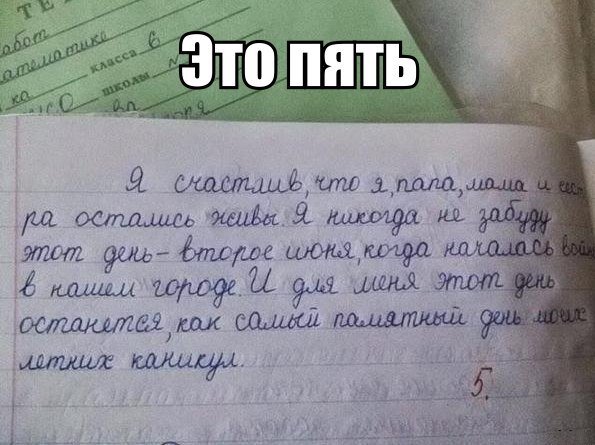 ТЕ
работ
математике
класса 6
школы
Это пять
Я счастлив, что я, папа, мама и сест
ра остались живы. Я никогда не забуду
этот день – второе июня, когда началась война
в нашем городе. И для меня этот день
останется, как самый памятный день моих
летних каникул.
5.